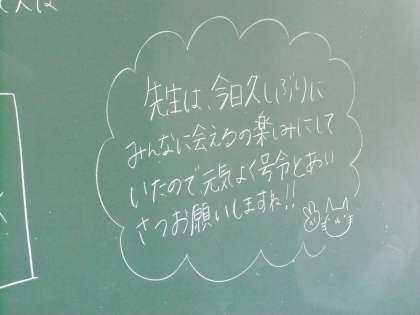 先生は、今日久しぶりに
みんなに会えるの楽しみにして
いたので元気よく号令とあい
さつお願いしますね!!